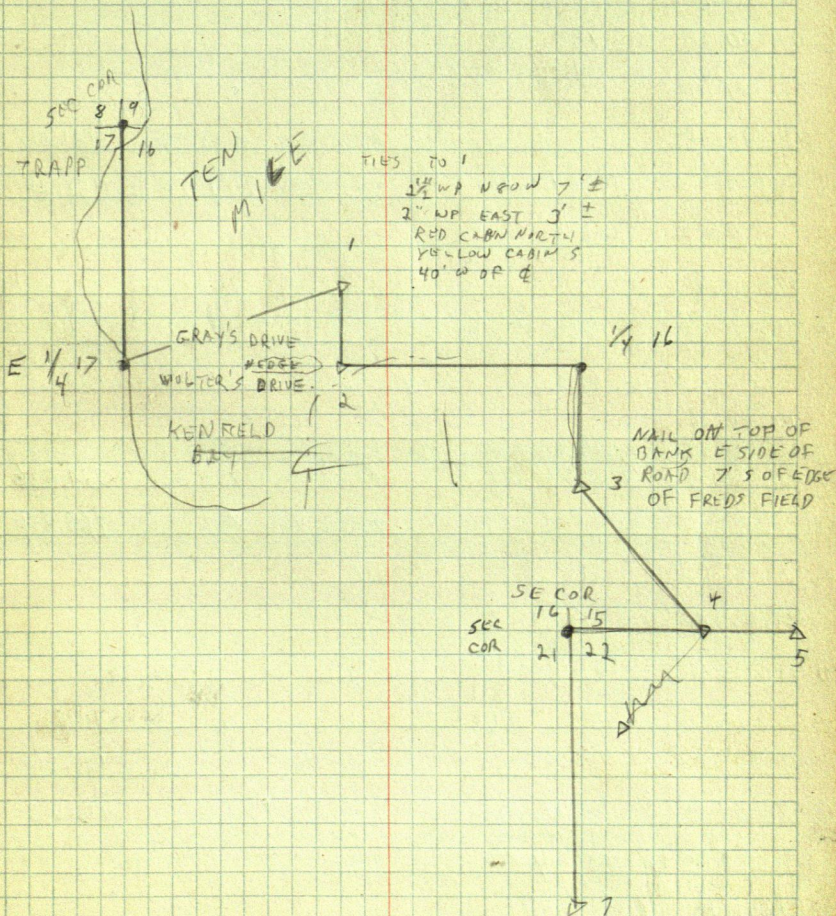 SEC COR
8 9
17 16
TRAPP
TEN
MILE
TIES TO 1
WP N80W 7' ±
2" WP EAST 3' ±
RED CABN NORTH
YELLOW CABIN S
40' W OF ℄
1
GRAY'S DRIVE
E 1/4 17
HEDGE
WOLTER'S DRIVE
2
KENFIELD
BAY
1/4 16
NAIL ON TOP OF
BANK E SIDE OF
3 ROAD 7' S OF EDGE
OF FREDS FIELD
SE COR
16 15
SEC
COR
21 22
4
5
7